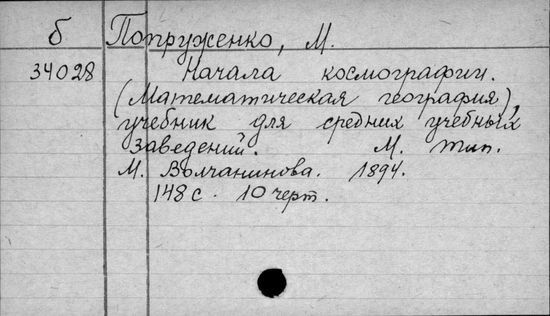 б Попруженко, М.
34028 Начала космографии.
(Математическая география),
учебник для средних учебных
заведений. М. тип.
М. Волчанинова. 1894.
148 с. 10 черт.